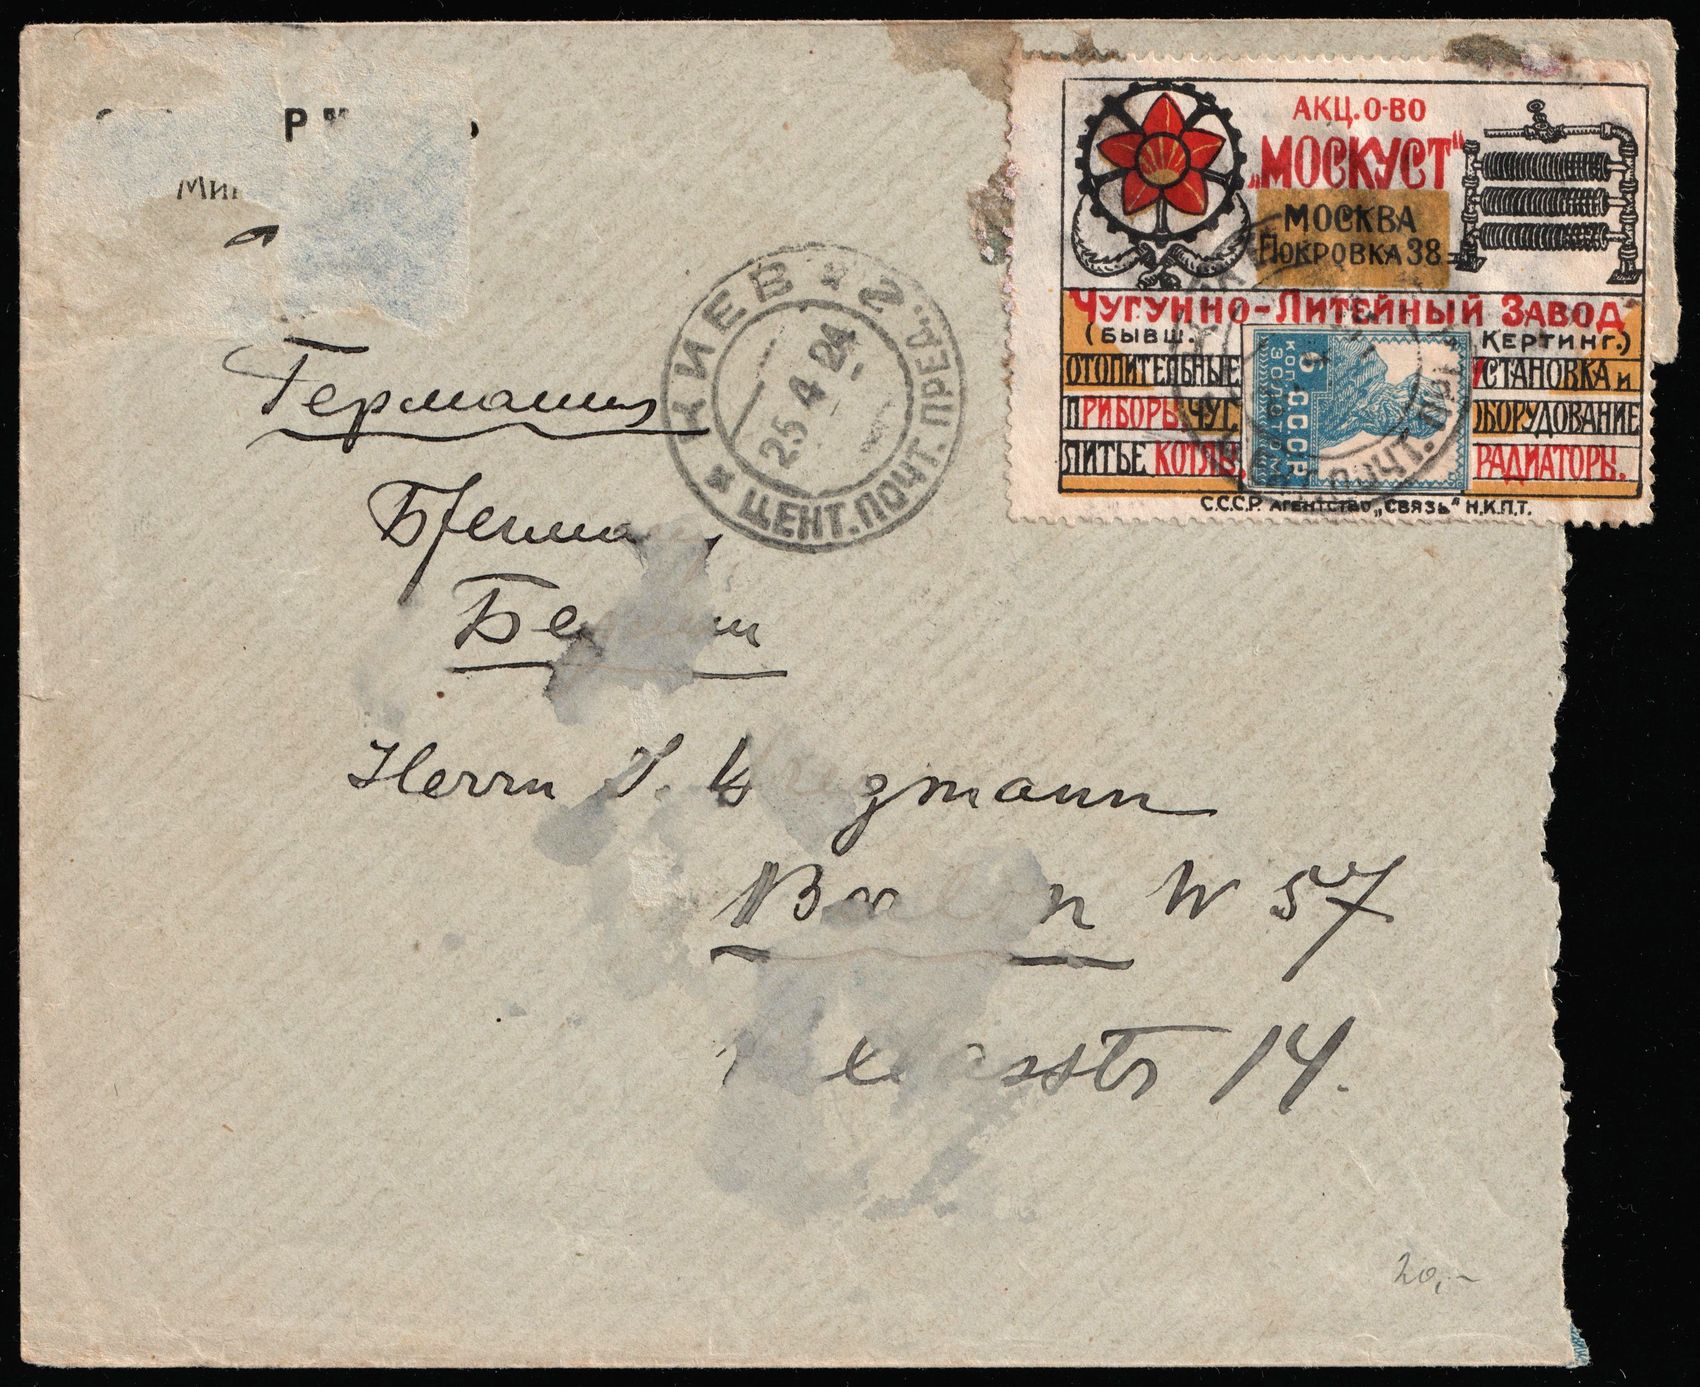 Р
Ми
АКЦ. О-ВО
„МОСКУСТ“
МОСКВА
ПОКРОВКА 38
ЧУГУННО-ЛИТЕЙНЫЙ ЗАВОД
(БЫВШ. КЕРТИНГ.)
ОТОПИТЕЛЬНЫЕ УСТАНОВКА и
ПРИБОРЫ ЧУГ ОБОРУДОВАНИЕ
ЛИТЬЕ КОТЛЫ. РАДИАТОРЫ.
С.С.С.Р. АГЕНТСТВО „СВЯЗЬ“ Н.К.П.Т.
6 КОП. ЗОЛОТОМ
СССР
КИЕВ * 2
25 4 24
* ЦЕНТ. ПОЧТ. ПРЕД.
ПОЧТ. ПРЕД.
Германия
Берлин
Herrn J.
Berlin W 57
14.
20,-